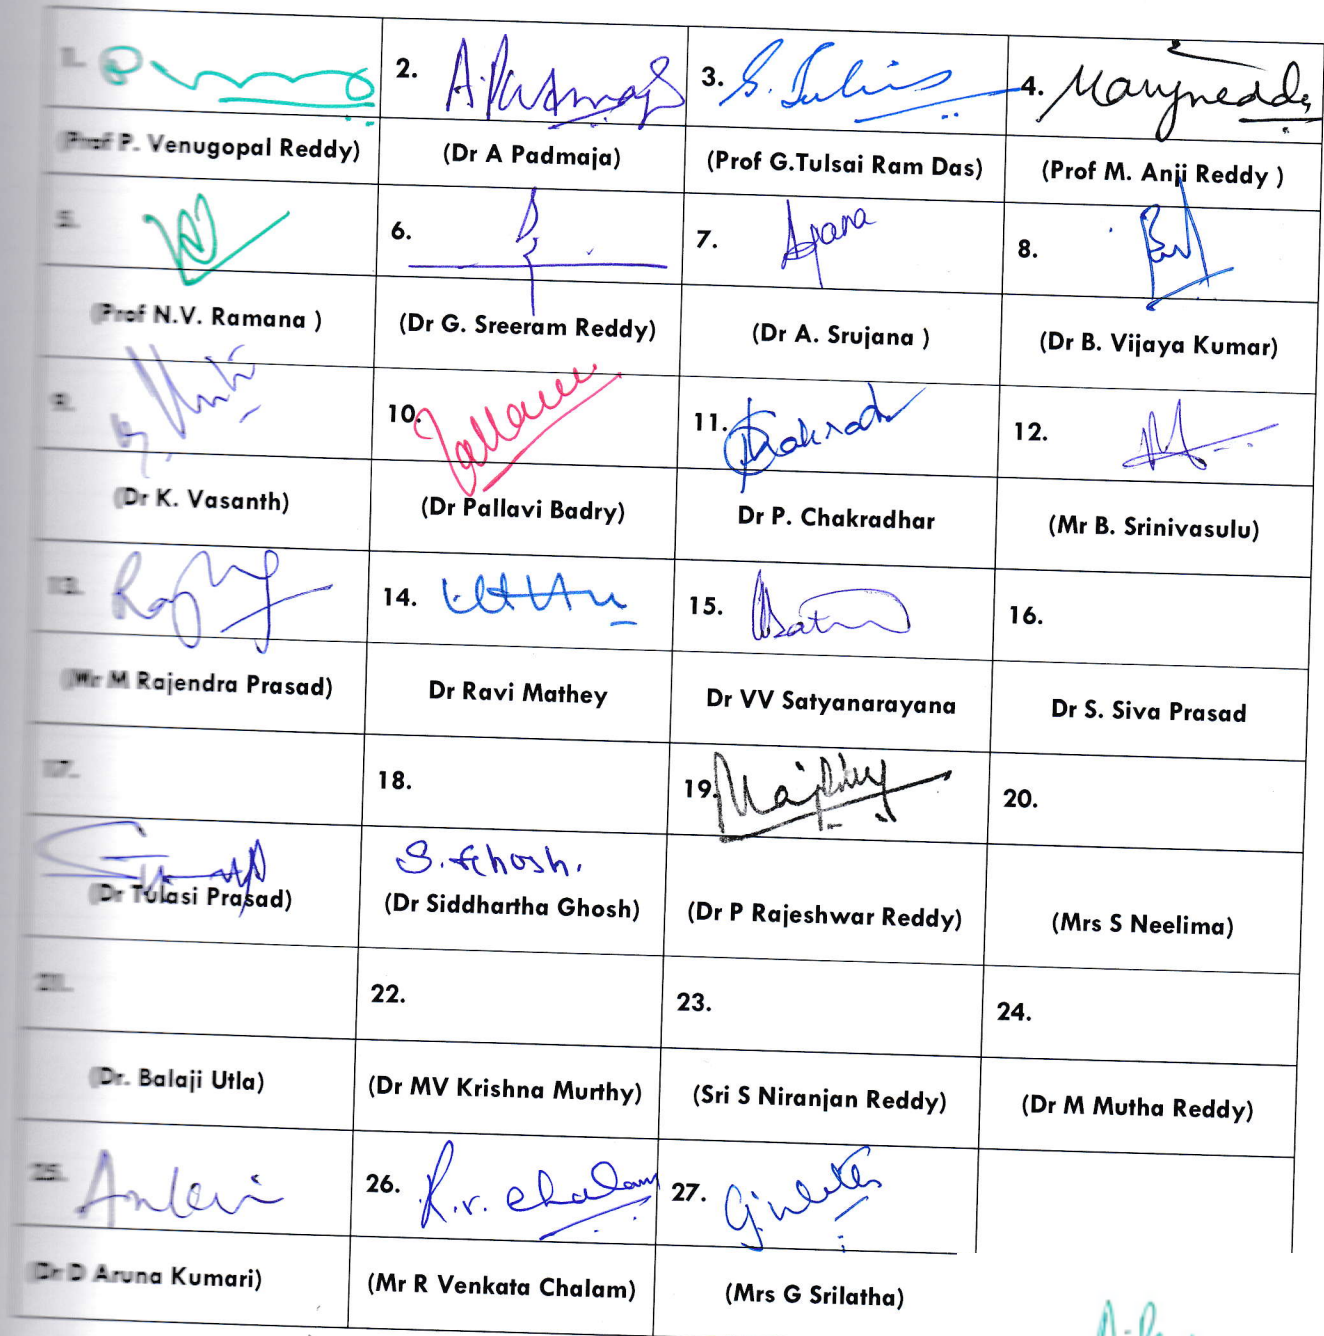 1. 2. A. Padmaja 3. 4.
(Prof P. Venugopal Reddy) (Dr A Padmaja) (Prof G.Tulsai Ram Das) (Prof M. Anji Reddy )
5. 6. 7. 8.
(Prof N.V. Ramana ) (Dr G. Sreeram Reddy) (Dr A. Srujana ) (Dr B. Vijaya Kumar)
9. 10. 11. 12.
(Dr K. Vasanth) (Dr Pallavi Badry) Dr P. Chakradhar (Mr B. Srinivasulu)
13. 14. 15. 16.
(Mr M Rajendra Prasad) Dr Ravi Mathey Dr VV Satyanarayana Dr S. Siva Prasad
17. 18. 19. 20.
S. Ghosh.
(Dr Tulasi Prasad) (Dr Siddhartha Ghosh) (Dr P Rajeshwar Reddy) (Mrs S Neelima)
21. 22. 23. 24.
(Dr. Balaji Utla) (Dr MV Krishna Murthy) (Sri S Niranjan Reddy) (Dr M Mutha Reddy)
25. 26. R.V. Chalam 27.
(Dr D Aruna Kumari) (Mr R Venkata Chalam) (Mrs G Srilatha)